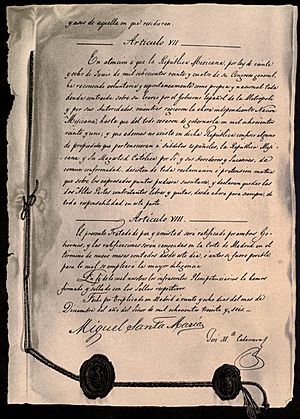 y usos de aquella en que residieren.
Articulo VII
En atencion á que la Republica Mexicana, por ley de veinte
y ocho de Junio de mil ochocientos veinte y cuatro de su Congreso general,
ha reconocido voluntaria y espontaneamente como propia y nacional toda
deuda contraida sobre su Erario por el Gobierno Español de la Metropoli
y por sus Autoridades, mientras rigieron la ahora independiente Nacion
Mexicana, hasta que del todo cesaron de gobernarla en mil ochocientos
veinte y uno; y que ademas no existe en dicha Republica confisco alguno
de propiedades que pertenecieran á subditos españoles, la Republica Mexi-
cana, y Su Magestad Catolica por Si, y sus herederos y Sucesores, de
comun conformidad, desisten de toda reclamacion ó pretension mutua
que sobre los expresados puntos pudiera suscitarse, y declaran quedar las
dos Altas Partes contratantes libres y quitas, desde ahora para siempre, de
toda responsabilidad en esta parte.
Articulo VIII.
El presente Tratado de paz y amistad será ratificado por ambos Go-
biernos, y las ratificaciones serán cangeadas en la Corte de Madrid en el
termino de nueve meses contados desde este dia, ó antes si fuere posible,
para lo cual se empleará la mayor diligencia.
En fé de lo cual nosotros los infrascritos Plenipotenciarios lo hemos
firmado y sellado con los Sellos respectivos.
Fecho por triplicado en Madrid á veinte y ocho dias del mes de
Diciembre del año del Señor de mil ochocientos treinta y seis.
Miguel Santa Maria
José Mª Calatrava